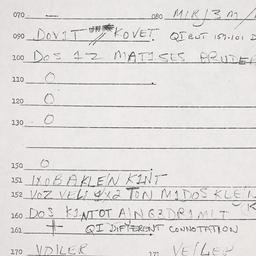 070. — 080 MIR/3M/
090 DOVIT KOVET QI BUT 157-101 D
100 DOS 12 MATISES BRUDER
110 O
120 O
130 O
150 O
151 1XOBA KLEIN KINT
152 VOZ VELI TON MIDOS KLEI
160 DOS KINTOT AINGEDRIMLT
161 + QI DIFFERENT CONNOTATION
170 VOILER 171 VEILER